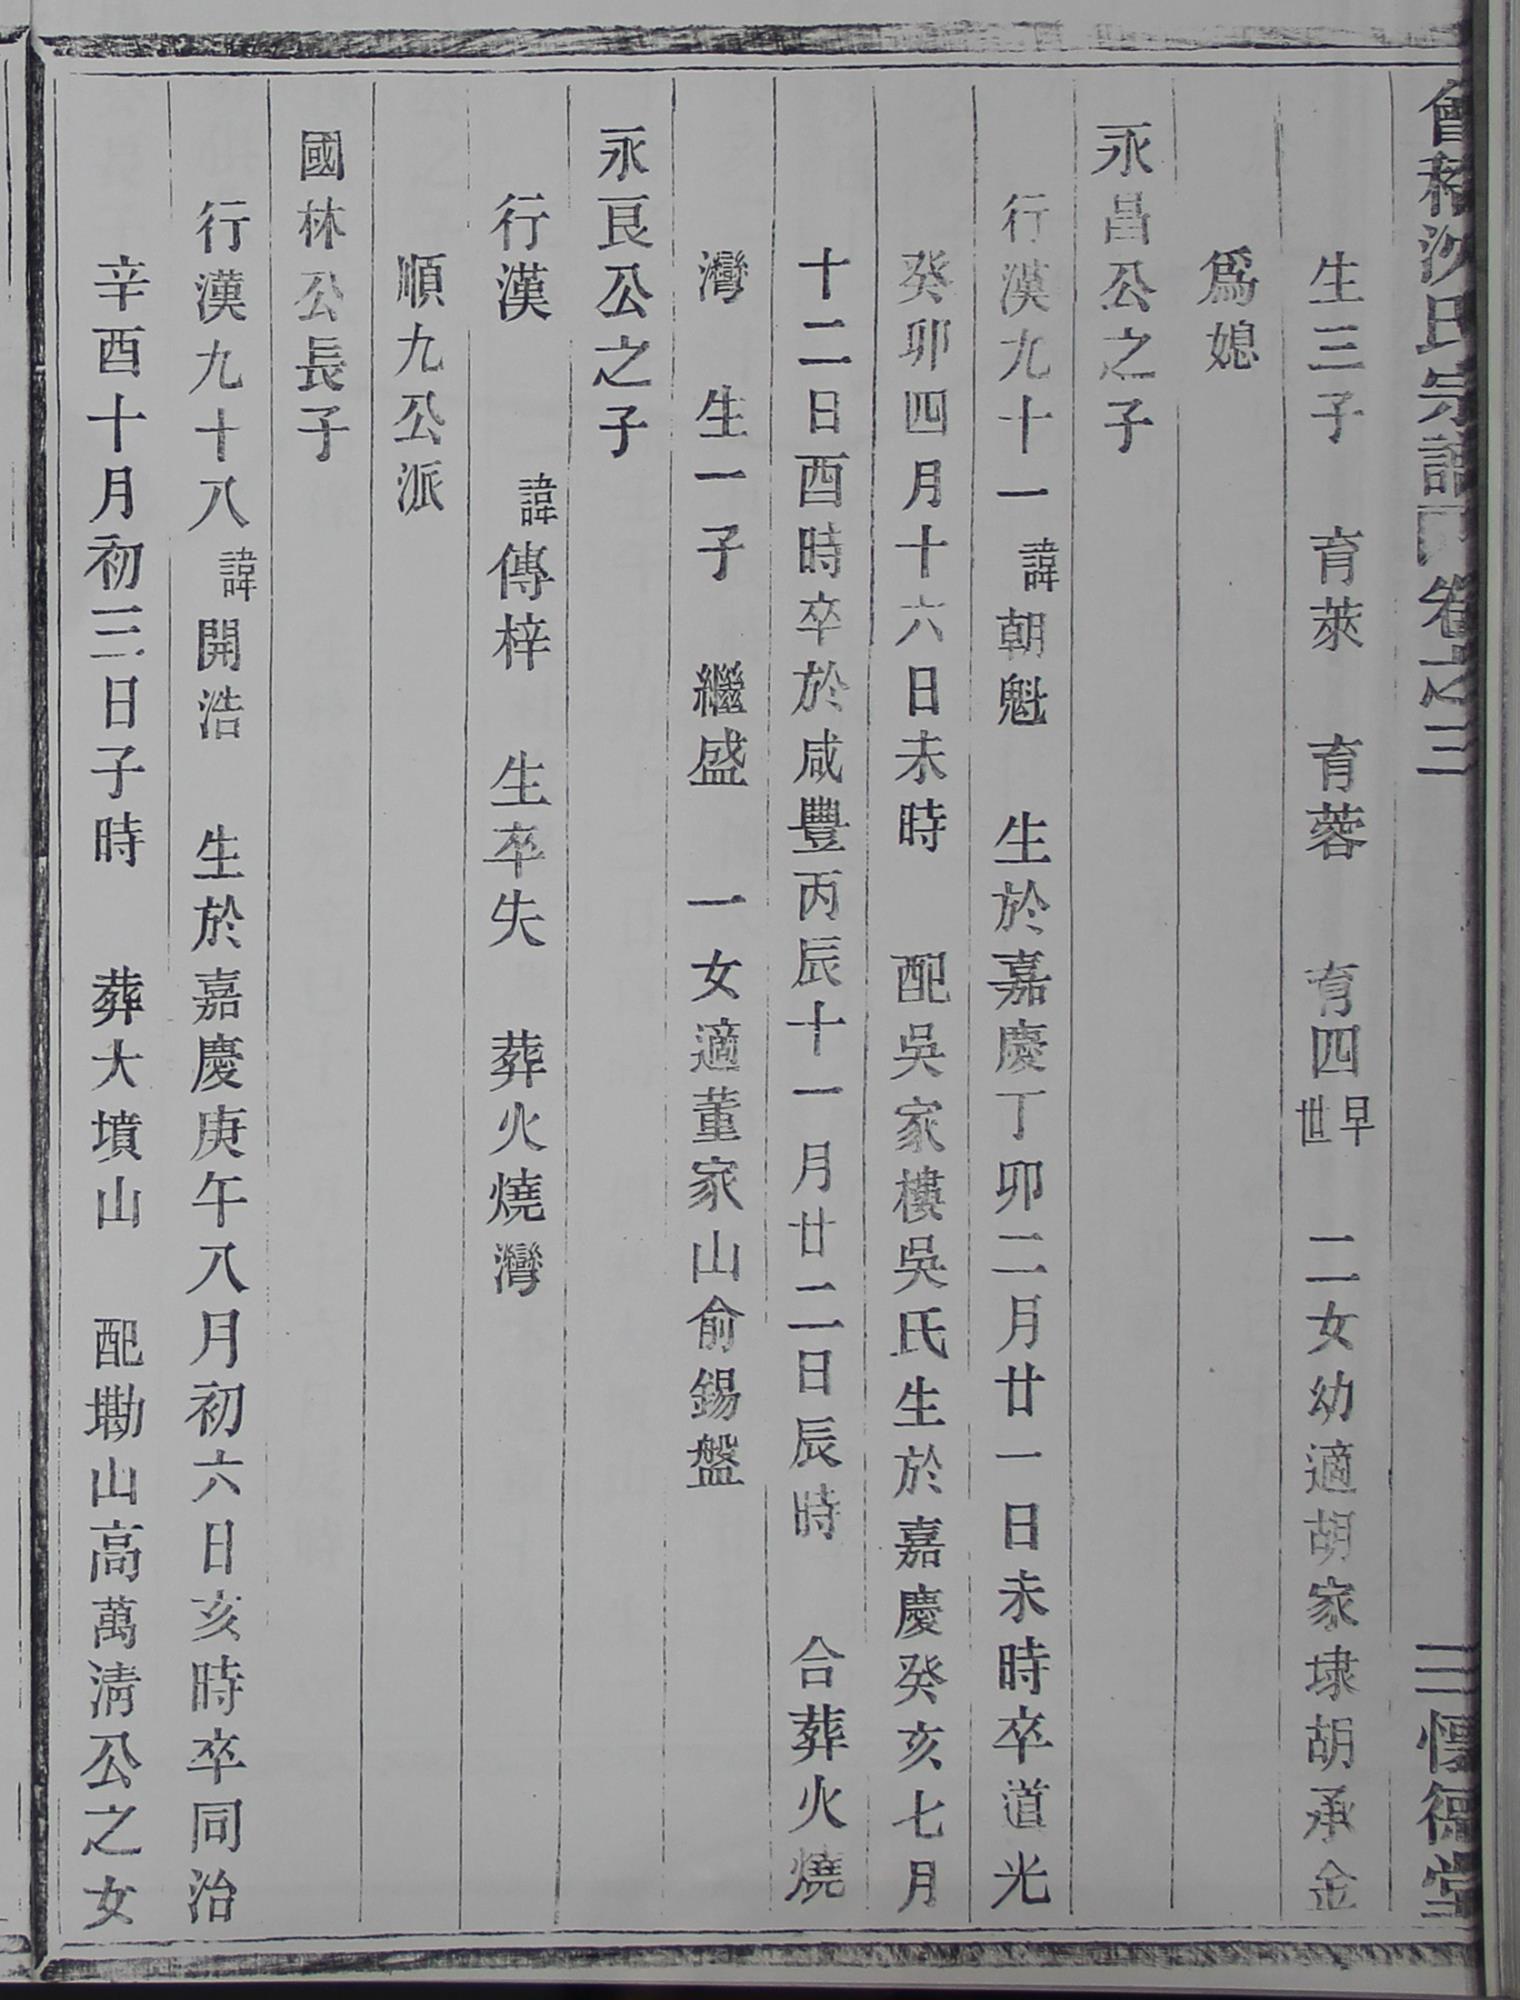 會稽沙氏宗譜 卷之三 三 懷德堂
生三子 育萊 育蓉 育四早世 二女幼適胡家埭胡承金
爲媳
永昌公之子
行漢九十一諱朝魁 生於嘉慶丁卯二月廿一日未時卒道光
癸卯四月十六日未時 配吳家樓吳氏生於嘉慶癸亥七月
十二日酉時卒於咸豐丙辰十一月廿二日辰時 合葬火燒
灣 生一子 繼盛 一女適董家山俞錫盤
永良公之子
行漢 諱傳梓 生卒失 葬火燒灣
順九公派
國林公長子
行漢九十八諱開浩 生於嘉慶庚午八月初六日亥時卒同治
辛酉十月初三日子時 葬大墳山 配墈山高萬清公之女